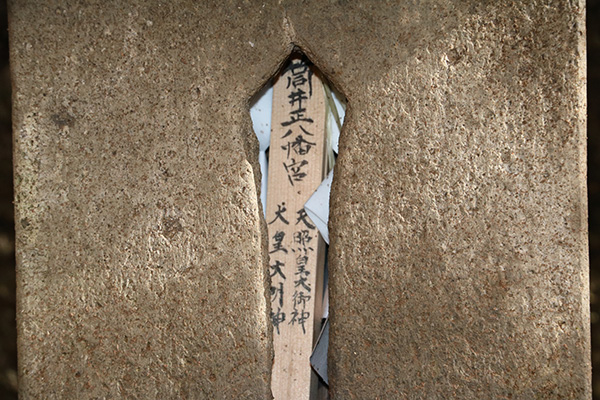 筒井正八幡宮
天照皇大御神
犬皇大明神